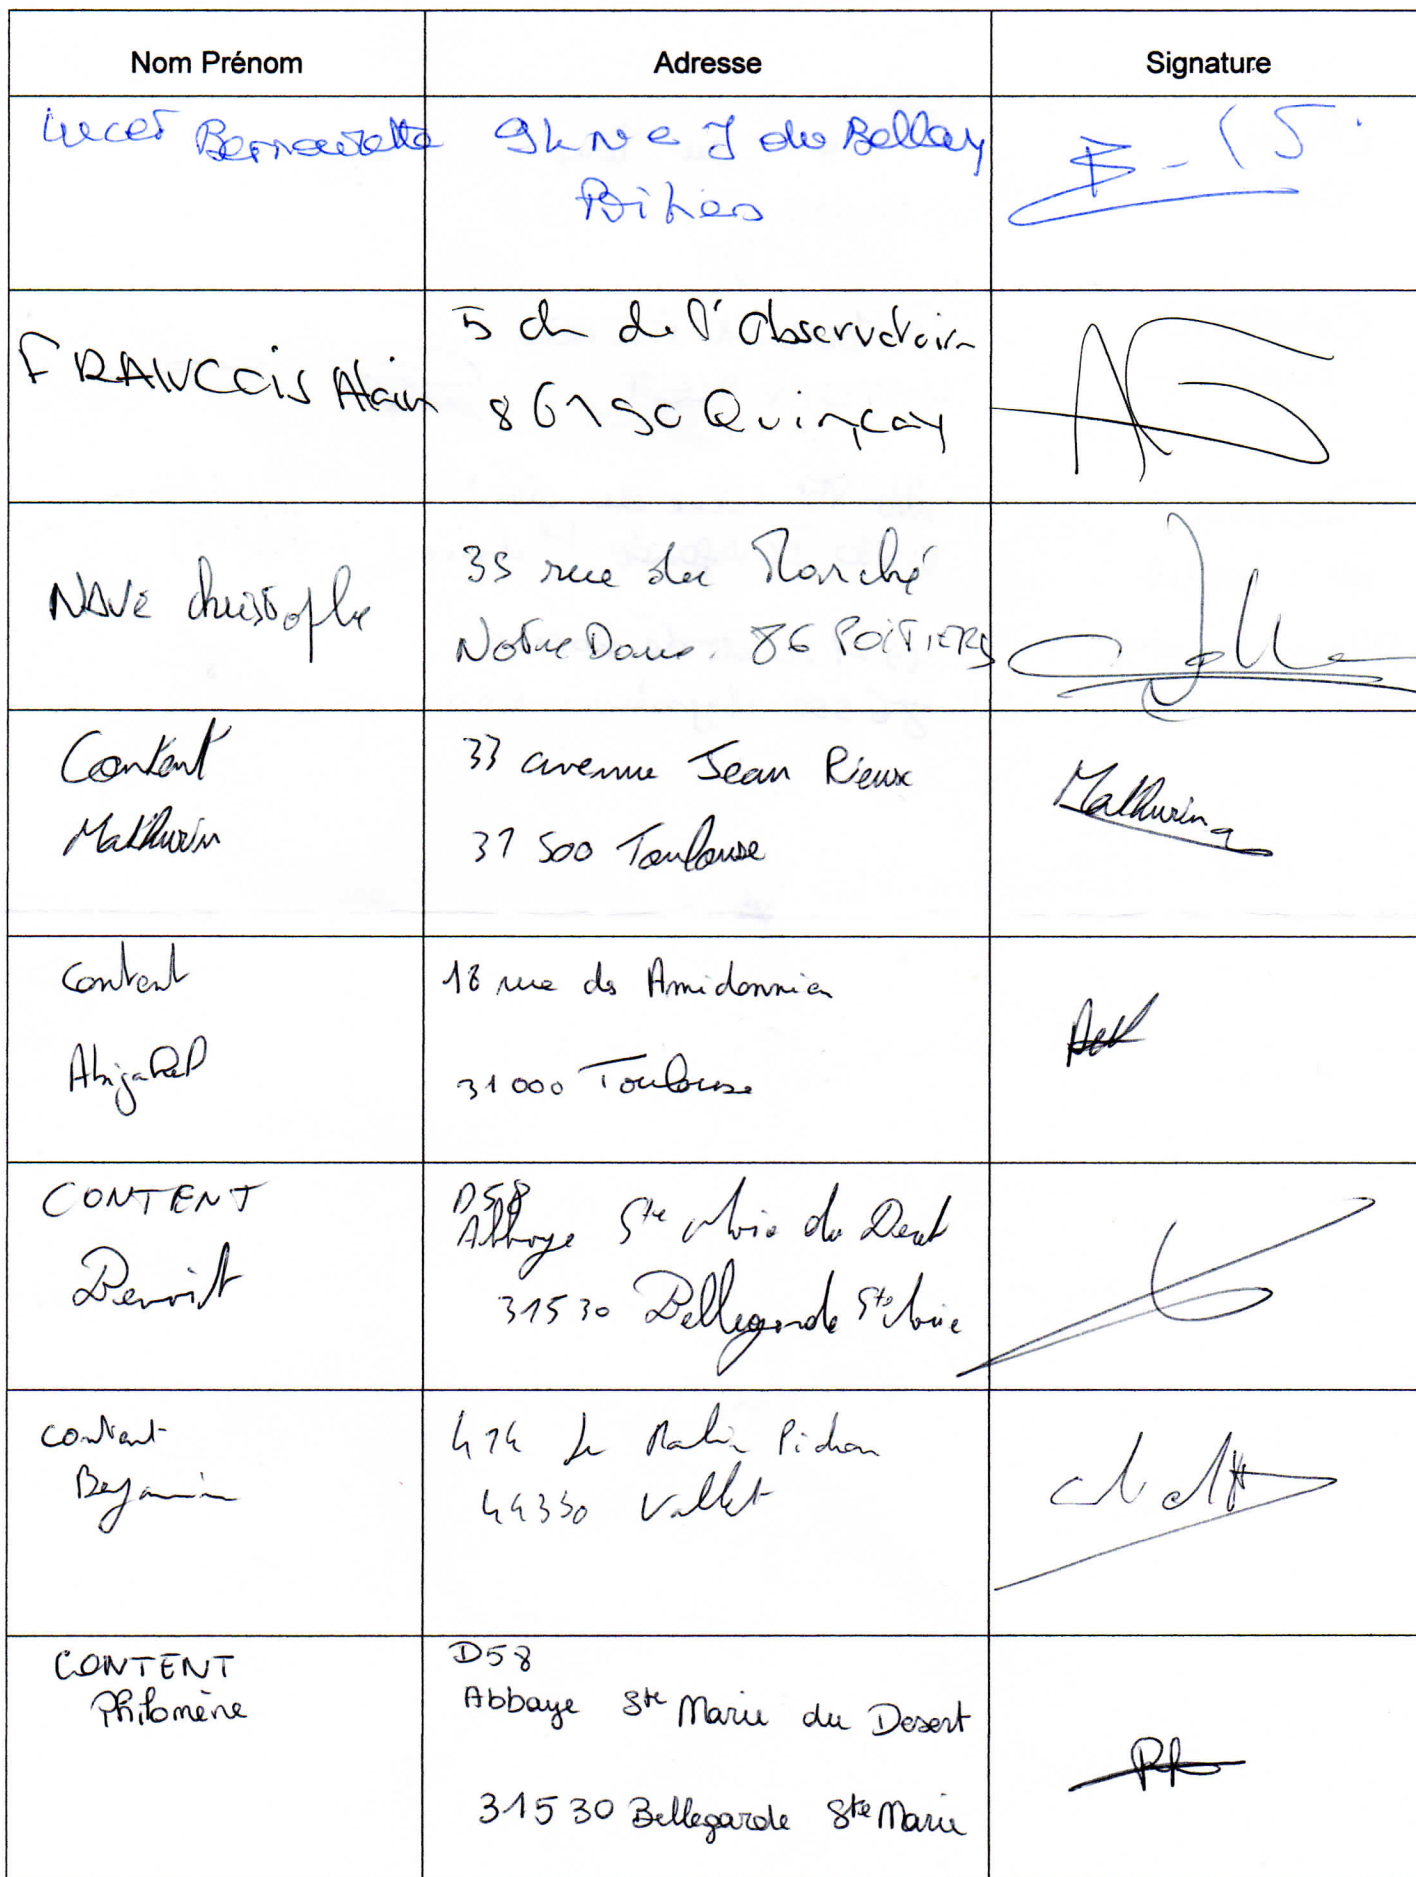 Nom Prénom Adresse Signature
Lucet Bernadette
rue J du Bellay
Poitiers
FRANCOIS Alain
5 ch de l'Observatoire
86190 Quinçay
NAVE christophe
35 rue du Marché
Notre Dame. 86 POITIERS
Content
Mathurin
33 avenue Jean Rieux
31 500 Toulouse
Mathurin
Content
Abigaël
18 rue des Amidonnier
31000 Toulouse
CONTENT
Benoit
D58
Abbaye Ste Marie du Desert
31530 Bellegarde Ste Marie
Content
Benjamin
414 Le Moulin Pichon
44330 Vallet
CONTENT
Philomène
D58
Abbaye Ste Marie du Desert
31530 Bellegarde Ste Marie